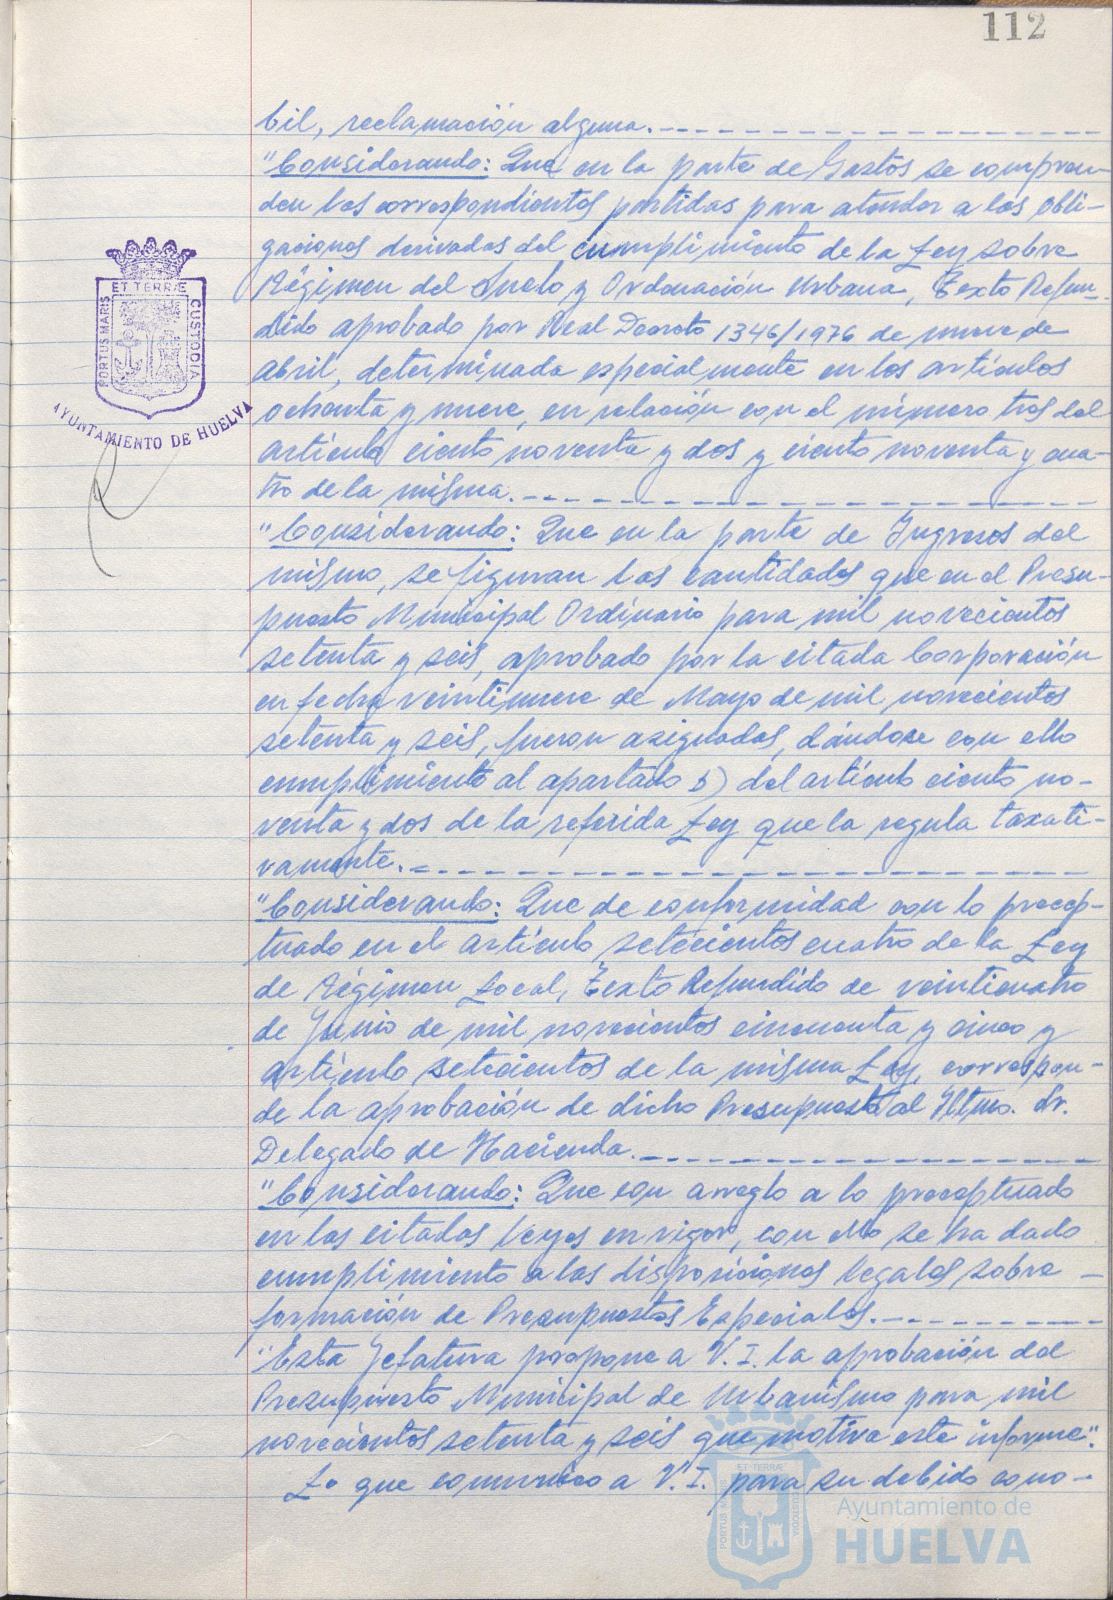 112
bil, reclamación alguna.
"Considerando: Que en la parte de Gastos se compren-
den las correspondientes partidas para atender a las obli-
gaciones derivadas del cumplimiento de la Ley sobre
Régimen del Suelo y Ordenación Urbana, Texto Refun-
dido aprobado por Real Decreto 1346/1976 de nueve de
abril, determinada especialmente en los artículos
ochenta y nueve, en relación con el número tres del
artículo ciento noventa y dos y ciento noventa y cua-
tro de la misma.
"Considerando: Que en la parte de Ingresos del
mismo, se figuran las cantidades que en el Presu-
puesto Municipal Ordinario para mil novecientos
setenta y seis, aprobado por la citada Corporación
en fecha veintinueve de Mayo de mil novecientos
setenta y seis, fueron asignadas, dándose con ello
cumplimiento al apartado b) del artículo ciento no-
venta y dos de la referida Ley que la regula taxati-
vamente.
"Considerando: Que de conformidad con lo precep-
tuado en el artículo setecientos cuatro de la Ley
de Régimen Local, Texto Refundido de veinticuatro
de Junio de mil novecientos cincuenta y cinco y
artículo setecientos de la misma Ley, correspon-
de la aprobación de dicho Presupuesto al Iltmo. Sr.
Delegado de Hacienda.
"Considerando: Que con arreglo a lo preceptuado
en las citadas Leyes en vigor, con ello se ha dado
cumplimiento a las disposiciones legales sobre
formación de Presupuestos Especiales.
"Esta Jefatura propone a V. I. la aprobación del
Presupuesto Municipal de Urbanismo para mil
novecientos setenta y seis que motiva este informe".
Lo que comunico a V. I. para su debido cono-
PORTUS MARIS ET TERRÆ CUSTODIA
AYUNTAMIENTO DE HUELVA
PORTUS MARIS ET TERRÆ CUSTODIA
Ayuntamiento de
HUELVA